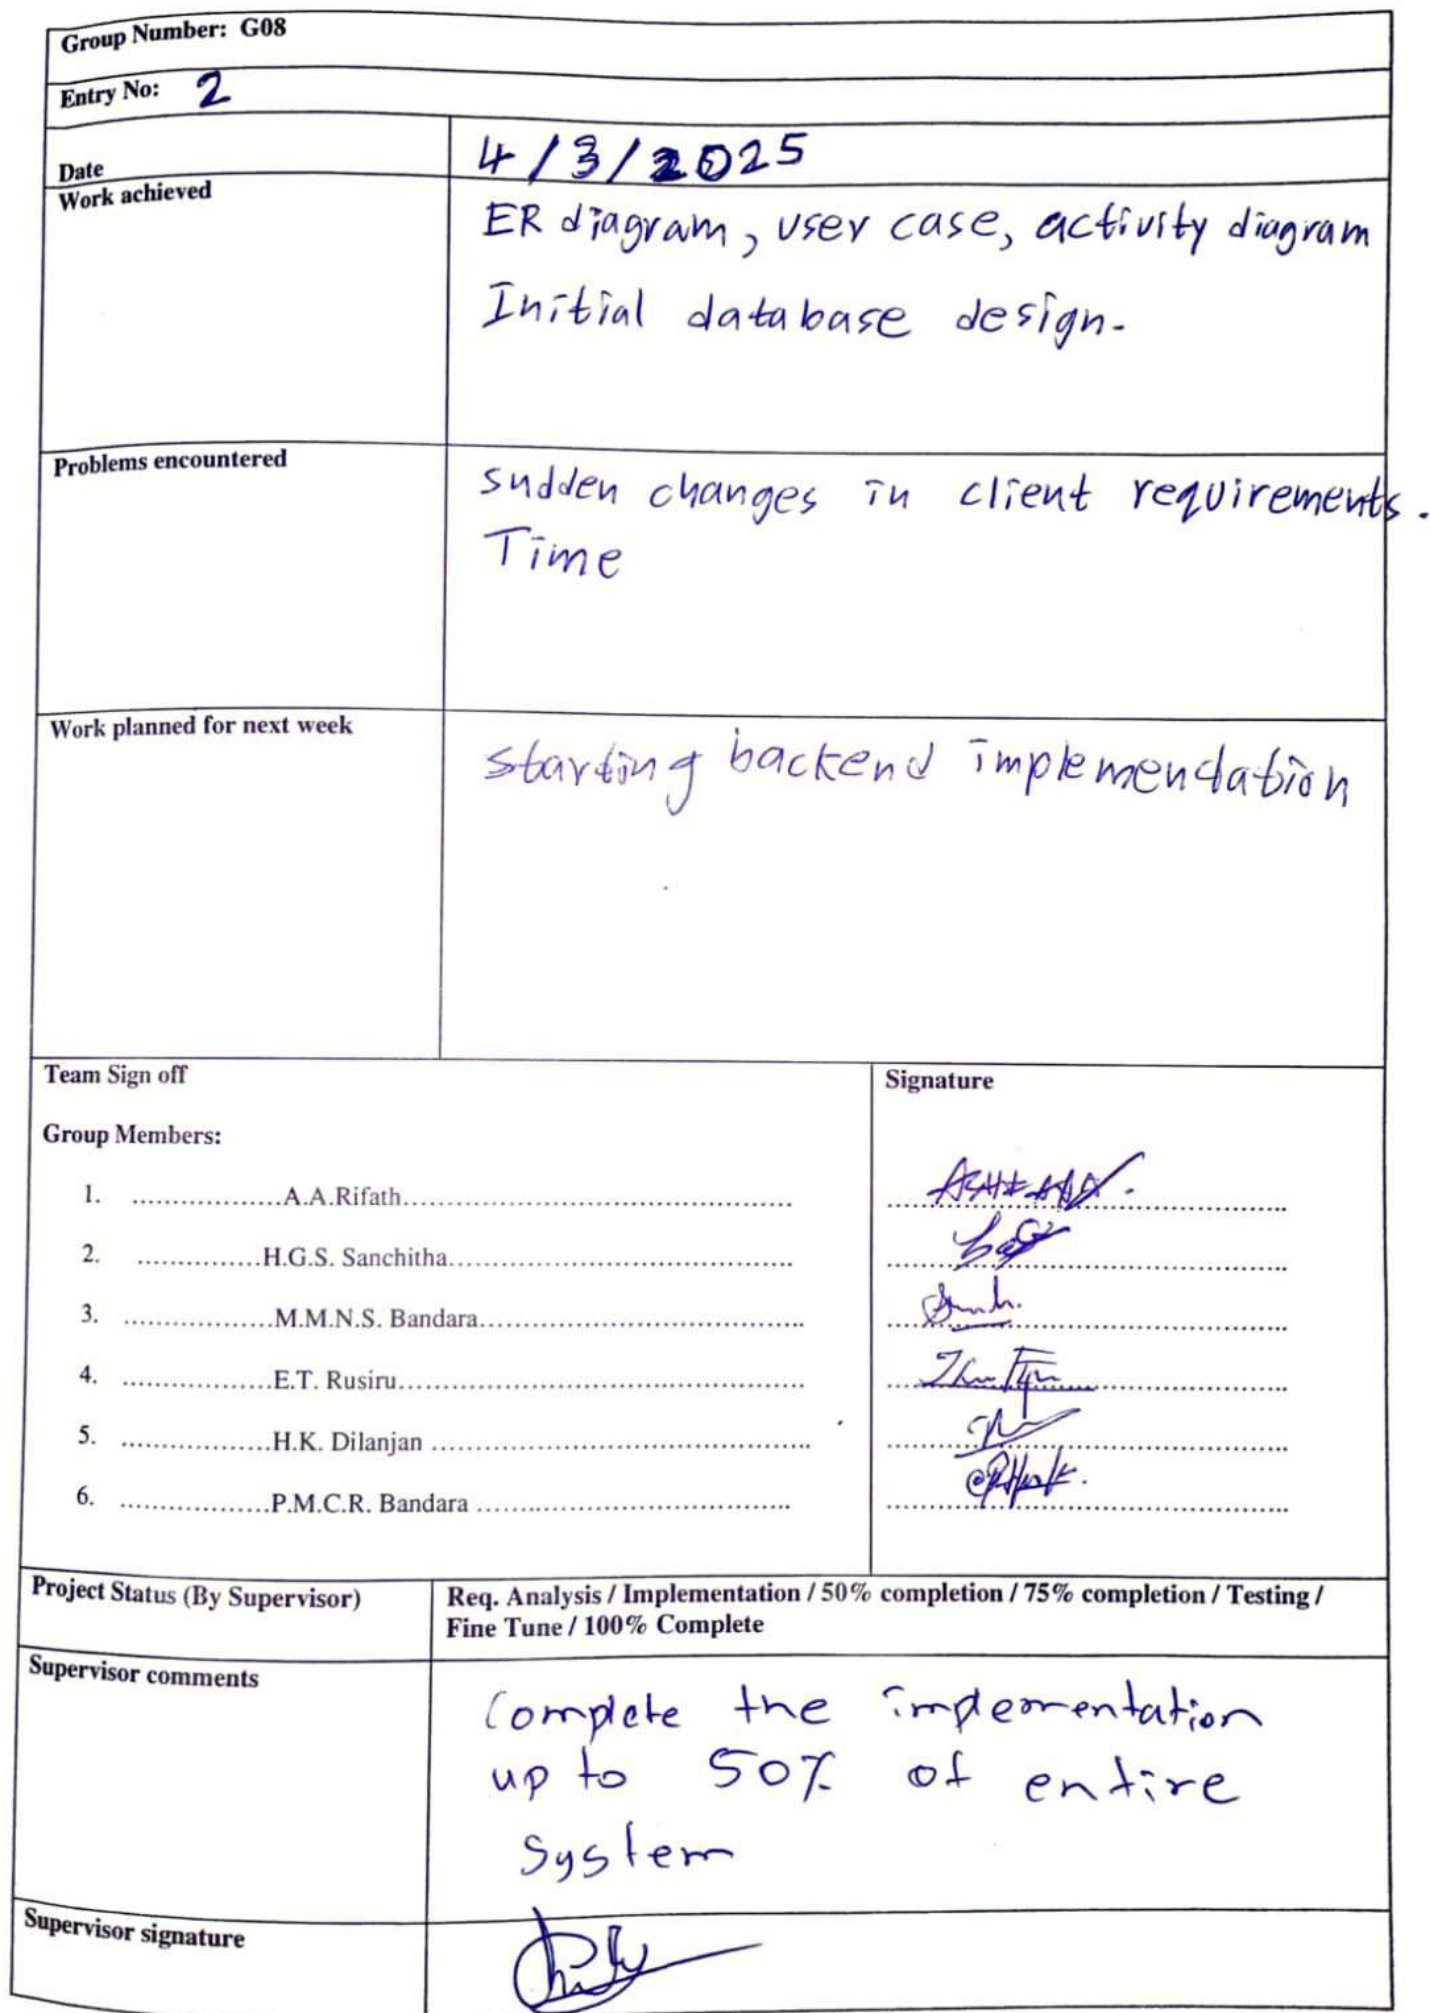 Group Number: G08
Entry No: 2
Date 4/3/2025
Work achieved
ER diagram, user case, activity diagram
Initial database design.
Problems encountered
sudden changes in client requirements.
Time
Work planned for next week
starting backend implementation
Team Sign off
Signature
Group Members:
1. ..................A.A.Rifath..............................................
2. ...............H.G.S. Sanchitha.........................................
3. ..................M.M.N.S. Bandara.......................................
4. ..................E.T. Rusiru.................................................
5. ..................H.K. Dilanjan ..............................................
6. ..................P.M.C.R. Bandara ......................................
Project Status (By Supervisor)
Req. Analysis / Implementation / 50% completion / 75% completion / Testing /
Fine Tune / 100% Complete
Supervisor comments
Complete the impementation
up to 50% of entire
System
Supervisor signature